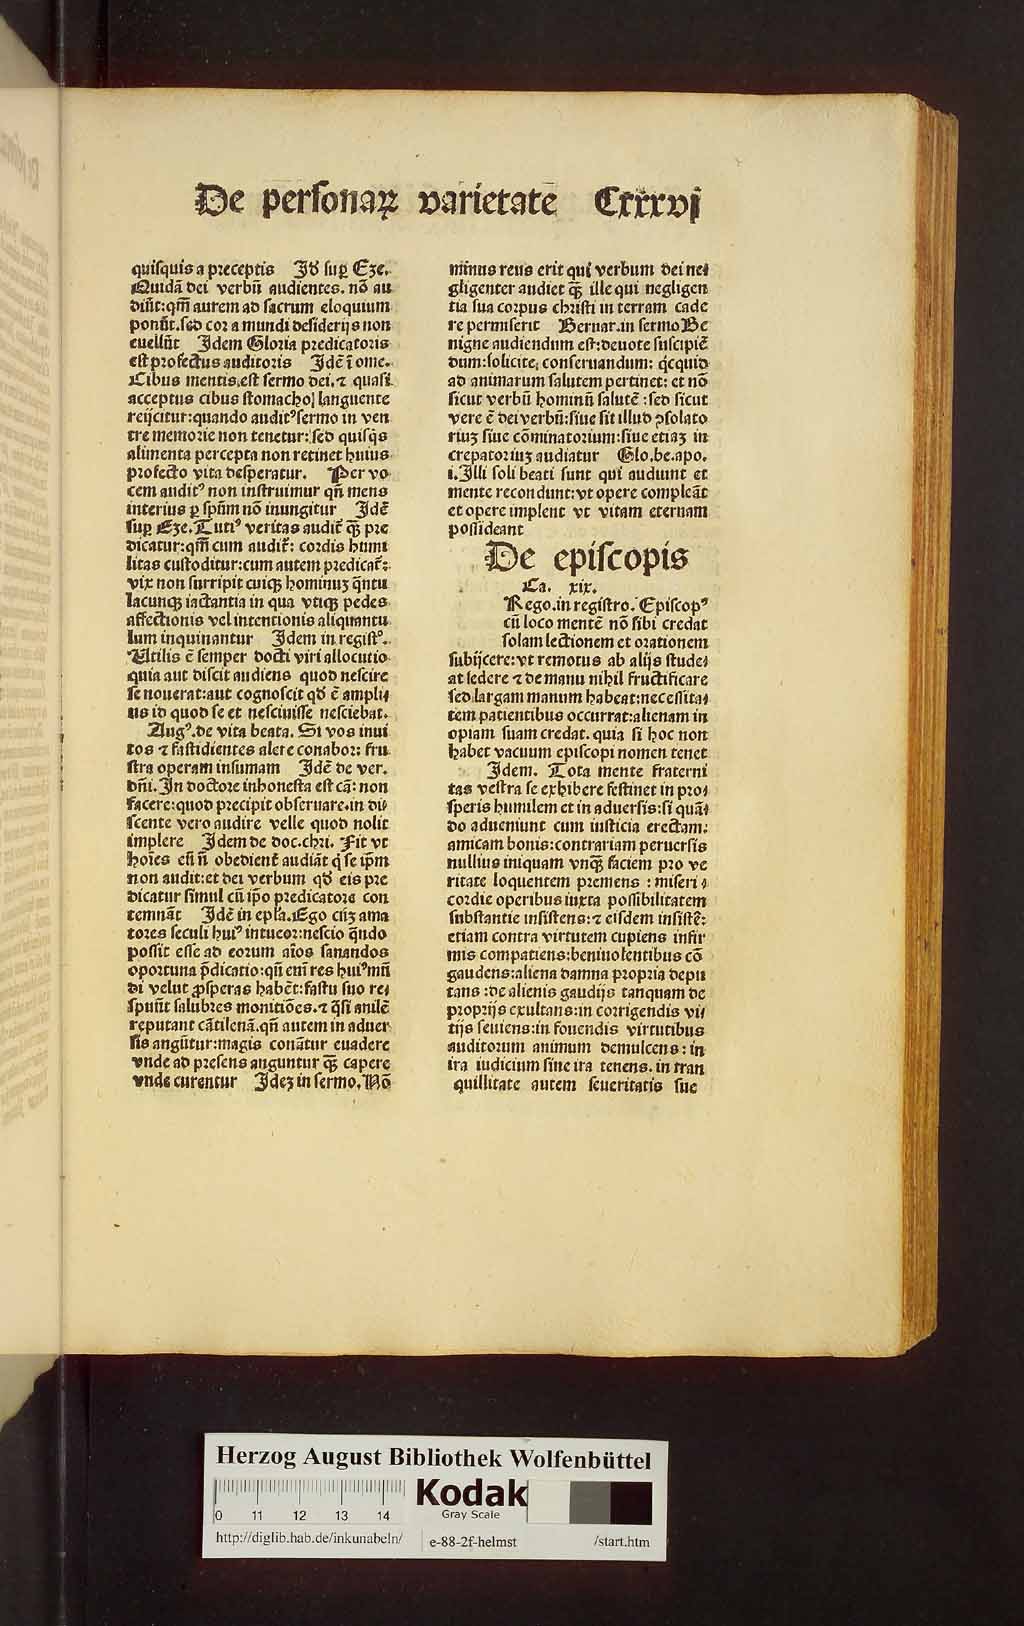 De personaꝝ varietate Cxxxvj
quisquis a preceptis Jdē suꝑ Eze.
Quidā dei verbū audientes. nō au
diūt:qm̄ aurem ad sacrum eloquium
ponūt.sed cor a mundi desiderijs non
euellūt Jdem Gloria predicatoris
est profectus auditoris Jdē ī ome.
Cibus mentis est sermo dei.⁊ quasi
acceptus cibus stomacho languente
reijcitur:quando auditꝰ sermo in ven
tre memorie non tenetur:sed quisq̄s
alimenta percepta non retinet huius
profecto vita desperatur. Per vo
cem auditꝰ non instruimur qn̄ mens
interius ꝑ spm̄ nō inungitur Jdē
suꝑ Eze. Tutiꝰ veritas audit̄ qꝫ pre
dicatur:qm̄ cum audit̄: cordis humi
litas custoditur:cum autem predicat̄:
vix non surripit cuiqꝫ hominuꝫ q̄ntu
lacunqꝫ iactantia in qua vtiqꝫ pedes
affectionis vel intentionis aliquantu
lum inquinantur Jdem in registꝰ.
Utilis ē semper docti viri allocutio
quia aut discit audiens quod nescire
se nouerat:aut cognoscit qd̄ ē ampli⸗
us id quod se et nesciuisse nesciebat.
Augꝰ.de vita beata. Si vos inui
tos ⁊ fastidientes alere conabor: fru
stra operam insumam Jdē de ver.
dn̄i. In doctore inhonesta est cā: non
facere:quod precipit obseruare.in di⸗
scente vero audire velle quod nolit
implere Jdem de doc.chri. Fit vt
hoīes eū n̄ obedient̄ audiāt q̄ se ip̄m
non audit:et dei verbum qd̄ eis pre
dicatur simul cū ip̄o predicatore con
temnāt Jdē in epl̄a. Ego cūꝫ ama
tores seculi huiꝰ intueor:nescio q̄ndo
possit esse ad eorum aīos sanandos
oportuna p̄dicatio:qn̄ enī res huiꝰ mū
di velut ꝓsperas habēt:fastu suo re⸗
spuūt salubres monitiōes.⁊ q̄si anilē
reputant cātilenā.qn̄ autem in aduer
sis angūtur:magis conātur euadere
vnde ad presens anguntur qꝫ capere
vnde curentur Jdeꝫ in sermo. Nō
minus reus erit qui verbum dei ne⸗
gligenter audiet qꝫ ille qui negligen
tia sua corpus christi in terram cade
re permiserit Bernar.in sermo Be
nigne audiendum est:deuote suscipiē
dum:solicite, conseruandum: q̄cquid
ad animarum salutem pertinet: et nō
sicut verbū hominū salutē :sed sicut
vere ē dei verbū:siue sit illud ꝯsolato
riuꝫ siue cōminatorium:siue etiaꝫ in
crepatoriuꝫ audiatur Glo.be.apo.
i. Illi soli beati sunt qui audiunt et
mente recondunt:vt opere compleāt
et opere implent vt vitam eternam
possideant
De episcopis
Ca. xix.
Rego.in registro. Episcopꝰ
cū loco mentē nō sibi credat
solam lectionem et orationem
subijcere:vt remotus ab alijs stude⸗
at sedere ⁊ de manu nihil fructificare
sed largam manum habeat:necessita⸗
tem patientibus occurrat:alienam in
opiam suam credat. quia si hoc non
habet vacuum episcopi nomen tenet
Jdem. Tota mente fraterni
tas vestra se exhibere festinet in pro⸗
speris humilem et in aduersis:si quā⸗
do adueniunt cum iusticia erectam:
amicam bonis:contrariam peruersis
nullius iniquam vnqꝫ faciem pro ve
ritate loquentem premens : miseri⸗
cordie operibus iuxta possibilitatem
substantie insistens:⁊ eisdem insistē:
etiam contra virtutem cupiens infir
mis compatiens:beniuolentibus cō
gaudens:aliena damna propria depu
tans :de alienis gaudijs tanquam de
proprijs exultans:in corrigendis vi⸗
tijs seuiens:in fouendis virtutibus
auditorum animum demulcens: in
ira iudicium sine ira tenens. in tran
quillitate autem seueritatis sue
Herzog August Bibliothek Wolfenbüttel
0 11 12 13 14
Kodak
Gray Scale
http://diglib.hab.de/inkunabeln/ e-88-2f-helmst /start.htm